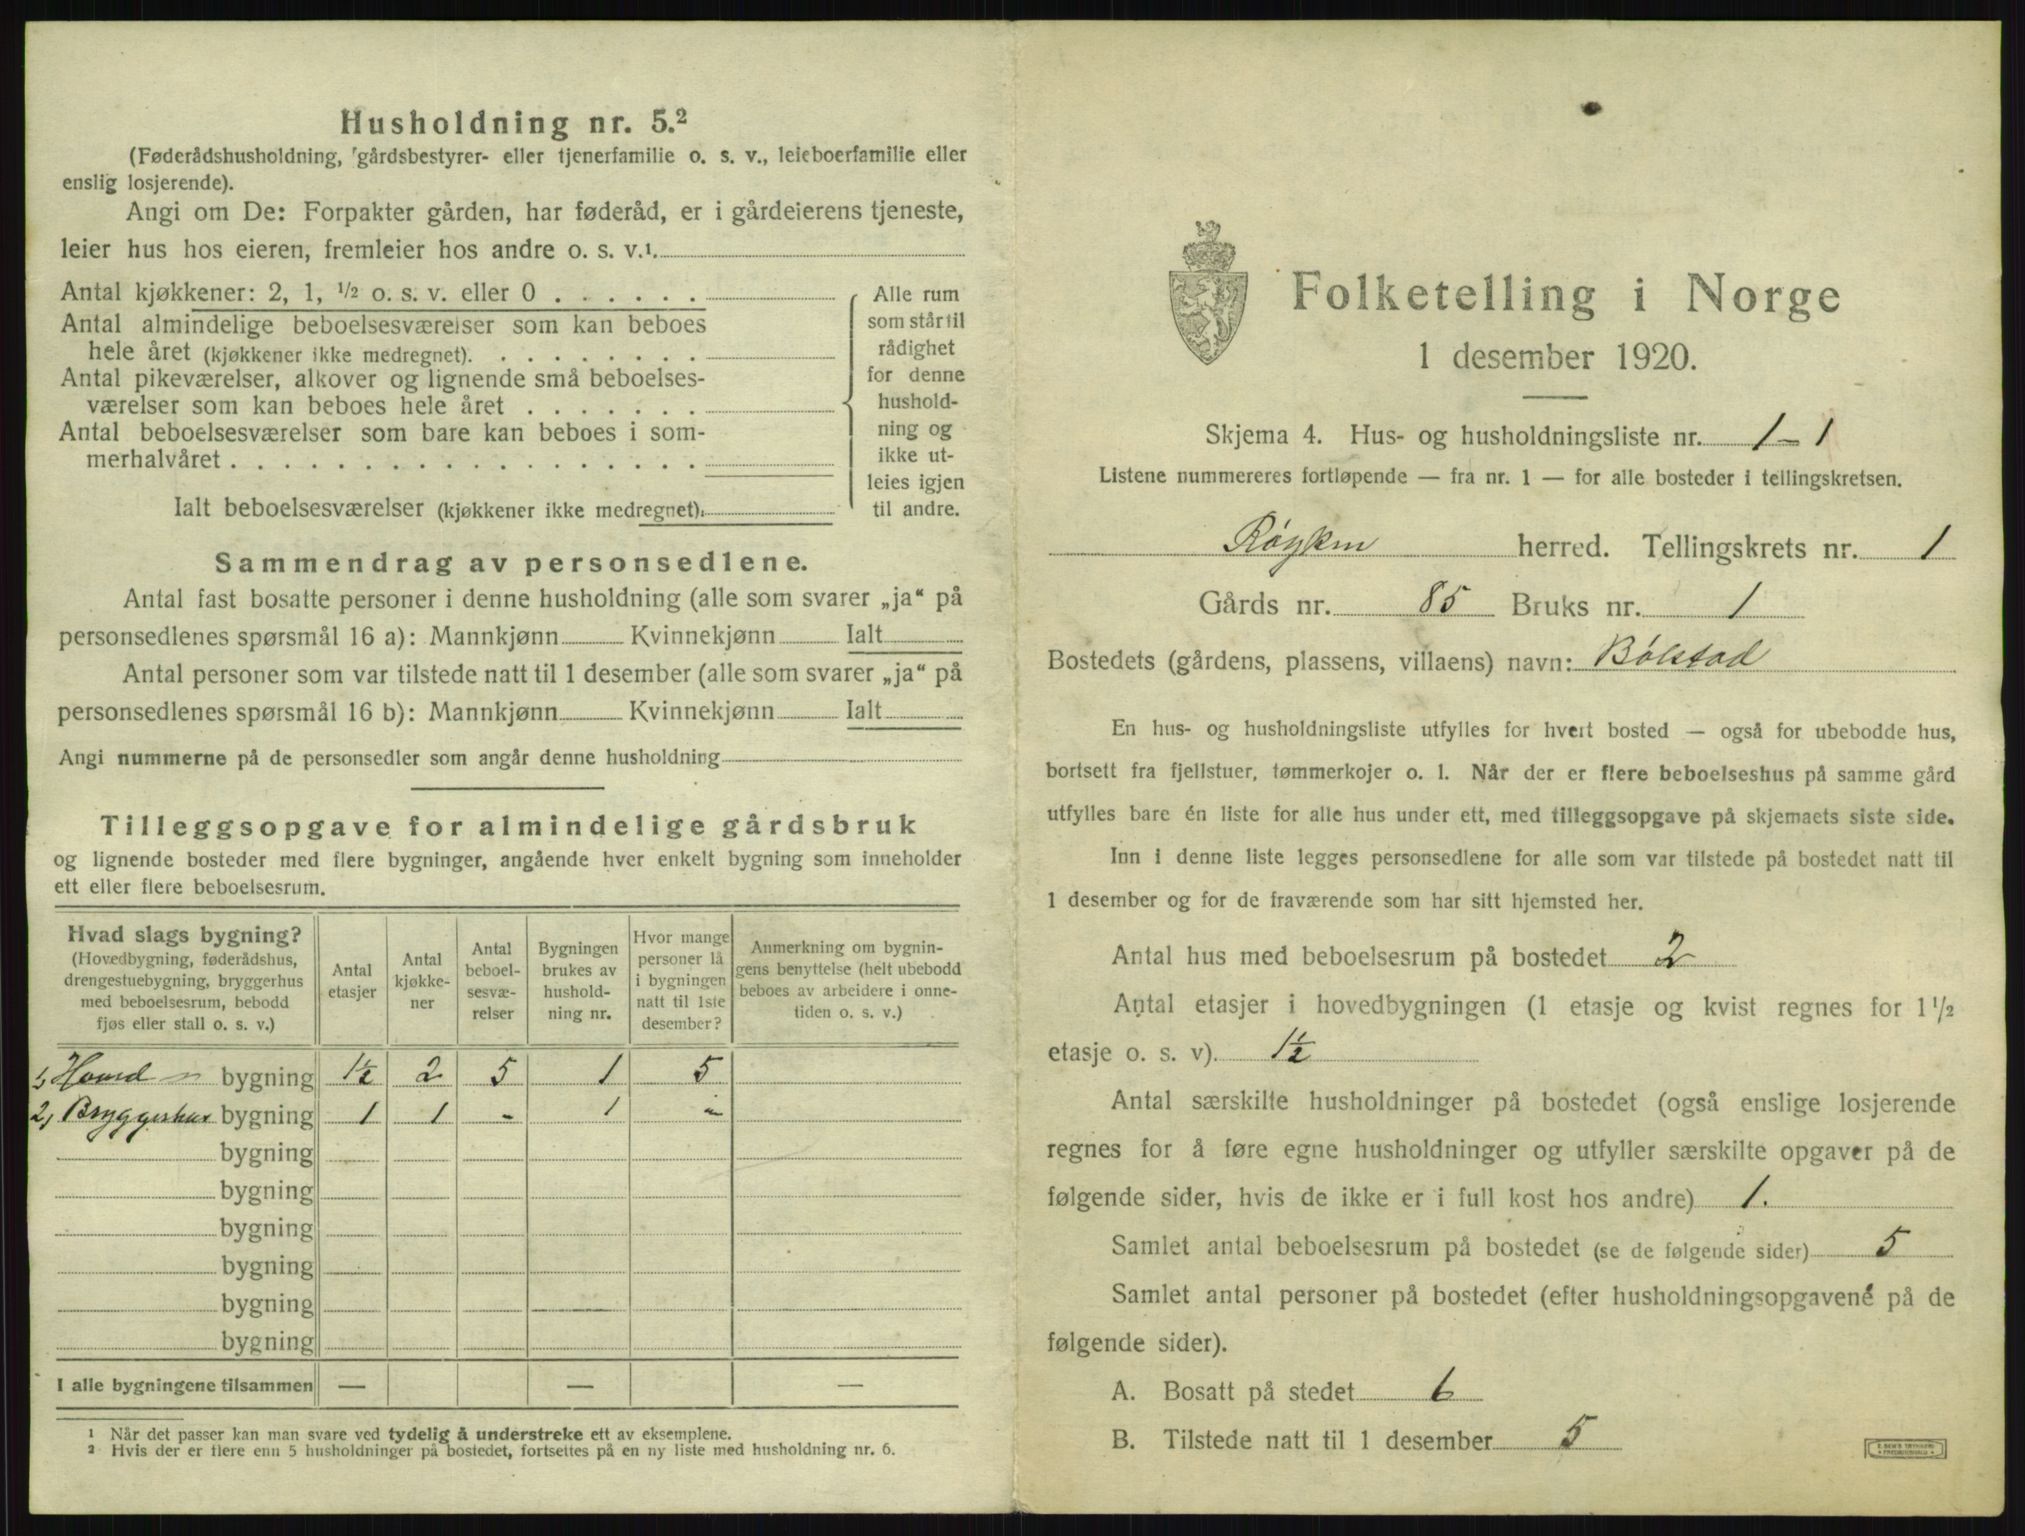 Husholdning nr. 5.²
(Føderådshusholdning, gårdsbestyrer- eller tjenerfamilie o. s. v., leieboerfamilie eller
enslig losjerende).
Angi om De: Forpakter gården, har føderåd, er i gårdeierens tjeneste,
leier hus hos eieren, fremleier hos andre o. s. v.¹.
Antal kjøkkener: 2, 1, ½ o. s. v. eller 0 . . . . . .
Antal almindelige beboelsesværelser som kan beboes
hele året (kjøkkener ikke medregnet). . . . . . . . .
Antal pikeværelser, alkover og lignende små beboelses-
værelser som kan beboes hele året . . . . . . .
Antal beboelsesværelser som bare kan beboes i som-
merhalvåret . . . . . . . . . . . . . . . . . .
Ialt beboelsesværelser (kjøkkener ikke medregnet).
Alle rum
som står til
rådighet
for denne
hushold-
ning og
ikke ut-
leies igjen
til andre.
Sammendrag av personsedlene.
Antal fast bosatte personer i denne husholdning (alle som svarer „ja“ på
personsedlenes spørsmål 16 a): Mannkjønn Kvinnekjønn Ialt
Antal personer som var tilstede natt til 1 desember (alle som svarer „ja“ på
personsedlenes spørsmål 16 b): Mannkjønn Kvinnekjønn Ialt
Angi nummerne på de personsedler som angår denne husholdning
Tilleggsopgave for almindelige gårdsbruk
og lignende bosteder med flere bygninger, angående hver enkelt bygning som inneholder
ett eller flere beboelsesrum.
Hvad slags bygning?
(Hovedbygning, føderådshus,
drengestuebygning, bryggerhus
med beboelsesrum, bebodd
fjøs eller stall o. s. v.)
Antal
etasjer
Antal
kjøkke-
ner
Antal
beboel-
sesvæ-
relser
Bygningen
brukes av
hushold-
ning nr.
Hvor mange
personer lå
i bygningen
natt til 1ste
desember?
Anmerkning om bygnin-
gens benyttelse (helt ubebodd
beboes av arbeidere i onne-
tiden o. s. v.)
1, Hoved - bygning 1½ 2 5 1 5
2, Bryggerhus bygning 1 1 - 1 -
bygning
bygning
bygning
bygning
bygning
bygning
I alle bygningene tilsammen — — —
¹ Når det passer kan man svare ved tydelig å understreke ett av eksemplene.
² Hvis der er flere enn 5 husholdninger på bostedet, fortsettes på en ny liste med husholdning nr. 6.
Folketelling i Norge
1 desember 1920.
Skjema 4. Hus- og husholdningsliste nr. 1-1
Listene nummereres fortløpende — fra nr. 1 — for alle bosteder i tellingskretsen.
Røyken herred. Tellingskrets nr. 1
Gårds nr. 85 Bruks nr. 1
Bostedets (gårdens, plassens, villaens) navn: Bølstad
En hus- og husholdningsliste utfylles for hvert bosted — også for ubebodde hus,
bortsett fra fjellstuer, tømmerkojer o. l. Når der er flere beboelseshus på samme gård
utfylles bare én liste for alle hus under ett, med tilleggsopgave på skjemaets siste side.
Inn i denne liste legges personsedlene for alle som var tilstede på bostedet natt til
1 desember og for de fraværende som har sitt hjemsted her.
Antal hus med beboelsesrum på bostedet 2
Antal etasjer i hovedbygningen (1 etasje og kvist regnes for 1½
etasje o. s. v). 1½
Antal særskilte husholdninger på bostedet (også enslige losjerende
regnes for å føre egne husholdninger og utfyller særskilte opgaver på de
følgende sider, hvis de ikke er i full kost hos andre) 1.
Samlet antal beboelsesrum på bostedet (se de følgende sider) 5
Samlet antal personer på bostedet (efter husholdningsopgavene på de
følgende sider).
A. Bosatt på stedet 6
B. Tilstede natt til 1 desember 5